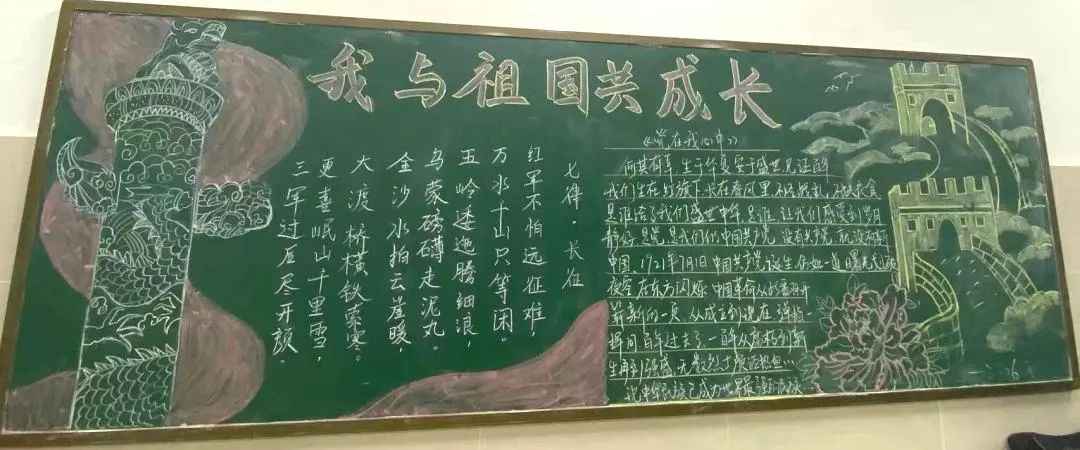 我与祖国共成长
七律·长征
红军不怕远征难。
万水千山只等闲。
五岭逶迤腾细浪，
乌蒙磅礴走泥丸。
金沙水拍云崖暖，
大渡桥横铁索寒。
更喜岷山千里雪，
三军过后尽开颜。
《党在我心中》
何其有幸 生于华夏 见证百年
我们生在红旗下 长在春风里
是谁给了我们盛世中华 是谁 让我们感受到岁月
静好 是党 是我们的中国共产党 没有共产党 就没有新
中国 1921年7月1日 中国共产党诞生
夜空 在东方闪烁 中国革命从此掀开
崭新的一页 从成立到现在
间 百年过去了 一百年
生再到强盛